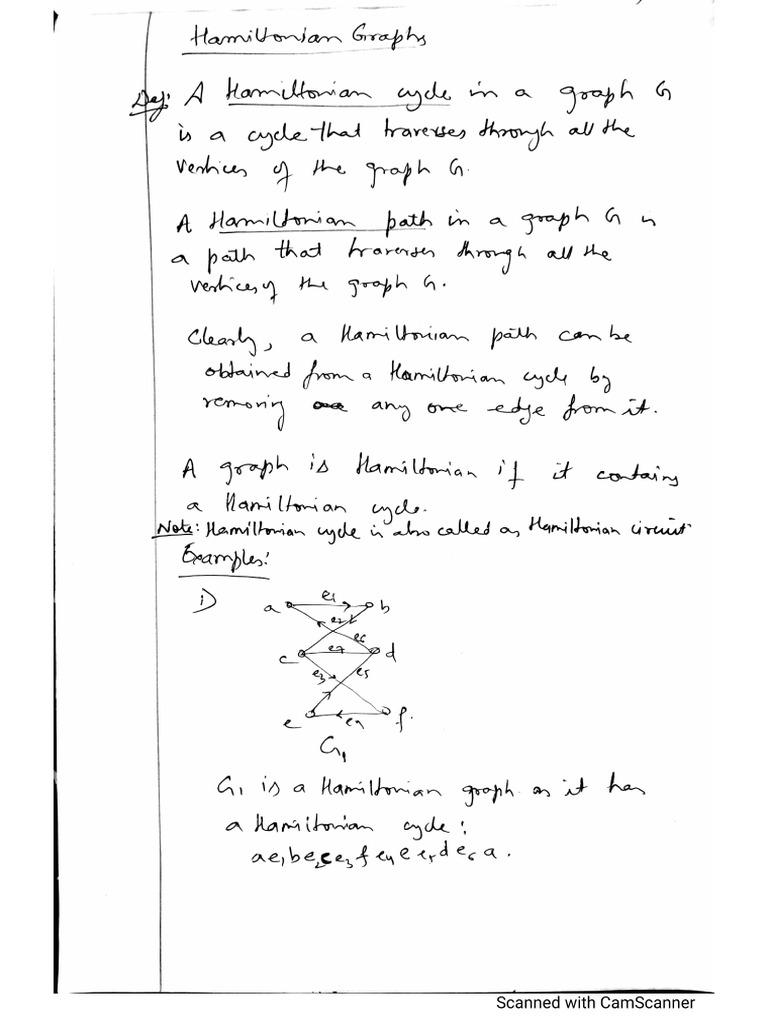 Hamiltonian Graphs
Def: A Hamiltonian cycle in a graph G
is a cycle that traverses through all the
vertices of the graph G.
A Hamiltonian path in a graph G is
a path that traverses through all the
vertices of the graph G.
Clearly, a Hamiltonian path can be
obtained from a Hamiltonian cycle by
removing any one edge from it.
A graph is Hamiltonian if it contains
a Hamiltonian cycle.
Note: Hamiltonian cycle is also called as Hamiltonian circuit
Examples:
i)
a e1 b
e2
e6
c e7 d
e3 e5
e e4 f.
G1
G1 is a Hamiltonian graph as it has
a Hamiltonian cycle:
a e1 b e2 c e3 f e4 e e5 d e6 a.
Scanned with CamScanner